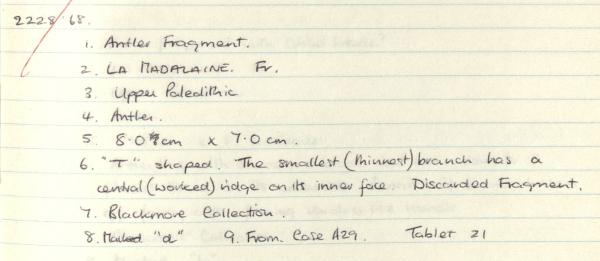 2228/68.
1. Antler Fragment.
2. LA MADALAINE. Fr.
3 Upper Paleolithic
4. Antler.
5 8.0cm x 7.0cm.
6. "T" shaped. The smallest (thinnest) branch has a
central (worked) ridge on its inner face. Discarded Fragment.
7. Blackmore Collection.
8. Marked "d" 9. From. Case A29. Tablet 21